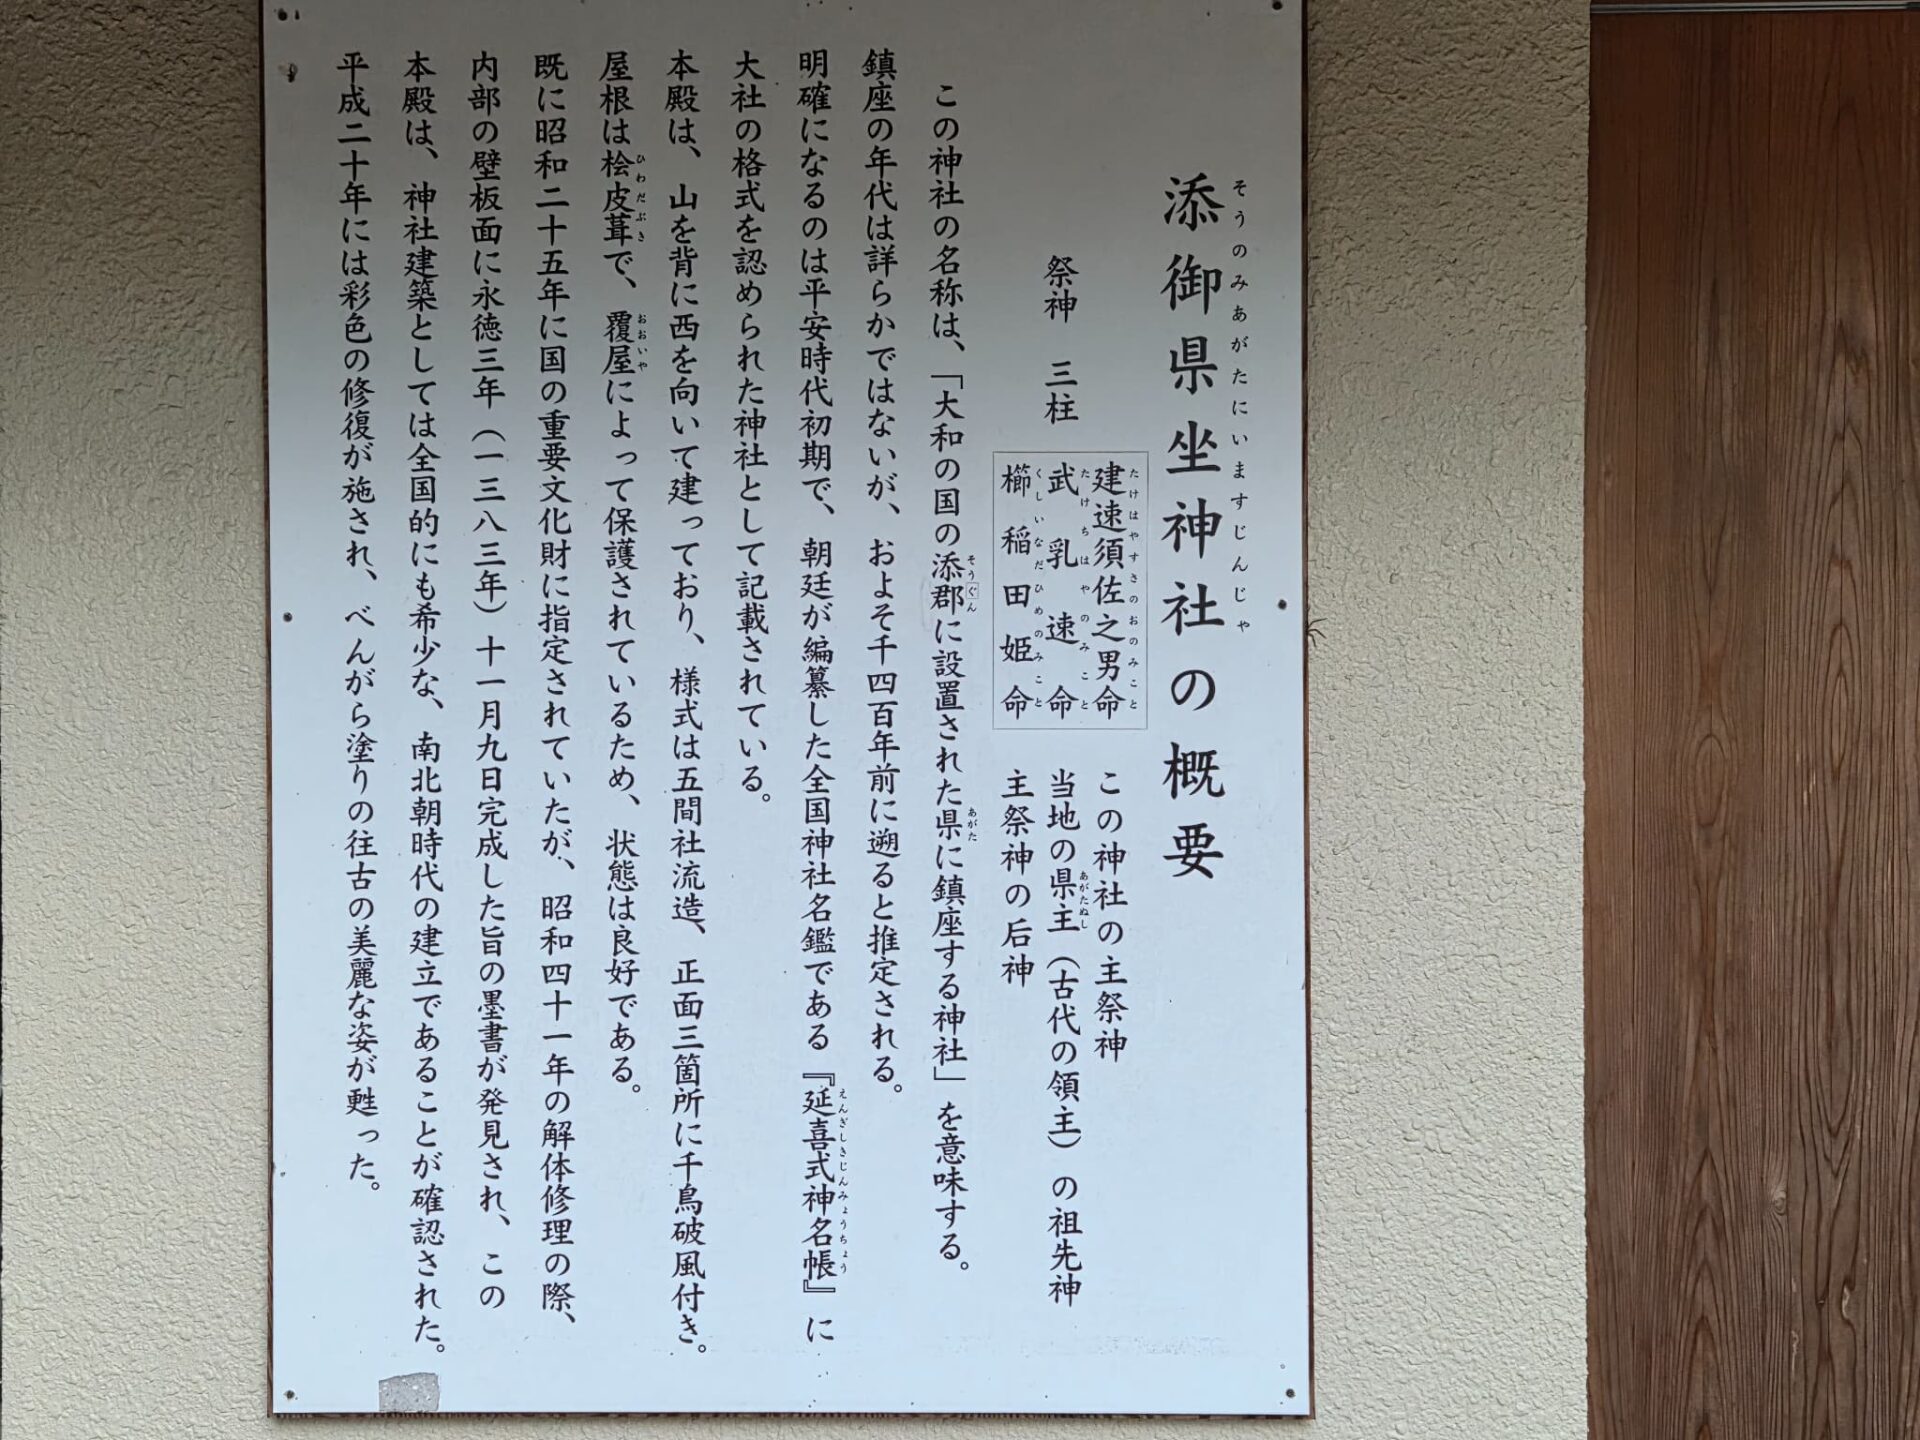 添御県坐神社の概要
そうのみあがたにいますじんじゃ
祭神　三柱
建速須佐之男命
たけはやすさのおのみこと
この神社の主祭神
武乳速命
たけちはやのみこと
当地の県主（古代の領主）の祖先神
あがたぬし
櫛稲田姫命
くしいなだひめのみこと
主祭神の后神
この神社の名称は、「大和の国の添郡に設置された県に鎮座する神社」を意味する。
そうぐん
あがた
鎮座の年代は詳らかではないが、およそ千四百年前に遡ると推定される。
明確になるのは平安時代初期で、朝廷が編纂した全国神社名鑑である『延喜式神名帳』に
えんぎしきじんみょうちょう
大社の格式を認められた神社として記載されている。
本殿は、山を背に西を向いて建っており、様式は五間社流造、正面三箇所に千鳥破風付き。
屋根は桧皮葺で、覆屋によって保護されているため、状態は良好である。
ひわだぶき
おおいや
既に昭和二十五年に国の重要文化財に指定されていたが、昭和四十一年の解体修理の際、
内部の壁板面に永徳三年（一三八三年）十一月九日完成した旨の墨書が発見され、この
本殿は、神社建築としては全国的にも希少な、南北朝時代の建立であることが確認された。
平成二十年には彩色の修復が施され、べんがら塗りの往古の美麗な姿が甦った。